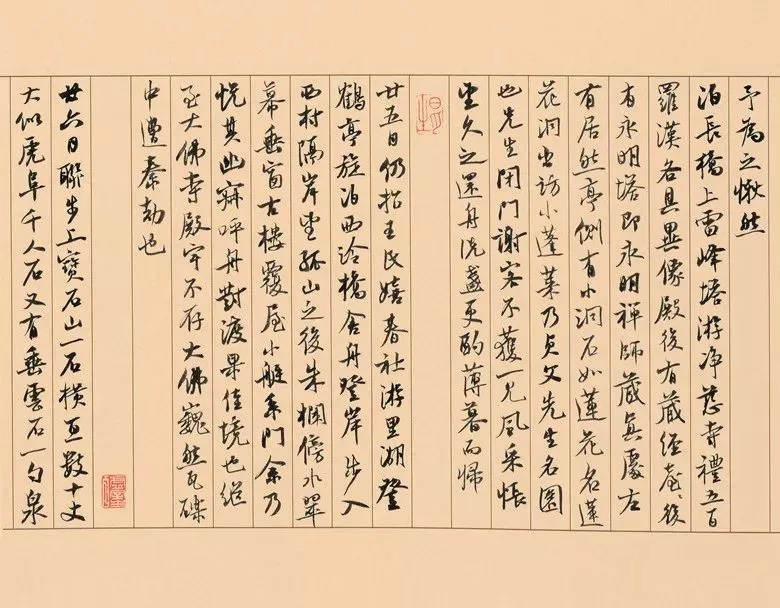 予為之愀然
泊長橋上雷峰塔游净慈寺禮五百
羅漢各具異像殿後有藏經臺〻後
有永明塔即永明禪師藏真處左
有居然亭側有小洞石如蓮花名蓮
花洞出訪小蓬萊乃貞父先生名園
也先生閉門謝客不獲一見風采悵
望久之還舟洗盞更酌薄暮而歸
廿五日仍拉王氏嬉春社游里湖登
鶴亭旋泊西泠橋舍舟登岸步入
西村隔岸望孤山之後朱欄傍水翠
幕垂窗古樓覆屋小艇系門余乃
悅其幽寂呼舟對渡果佳境也繼
至大佛寺殿宇不存大佛巍然瓦礫
中遭秦劫也
廿六日聯步上寶石山一石橫亙數十丈
大似虎阜千人石又有垂雲石一勺泉